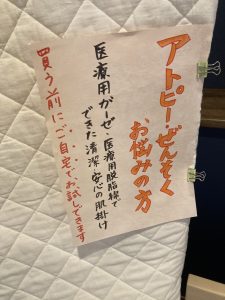 アトピーぜんそく
お悩みの方
医療用ガーゼ・医療用脱脂綿で
できた清潔安心の肌掛け
買う前にご自宅でお試しできます